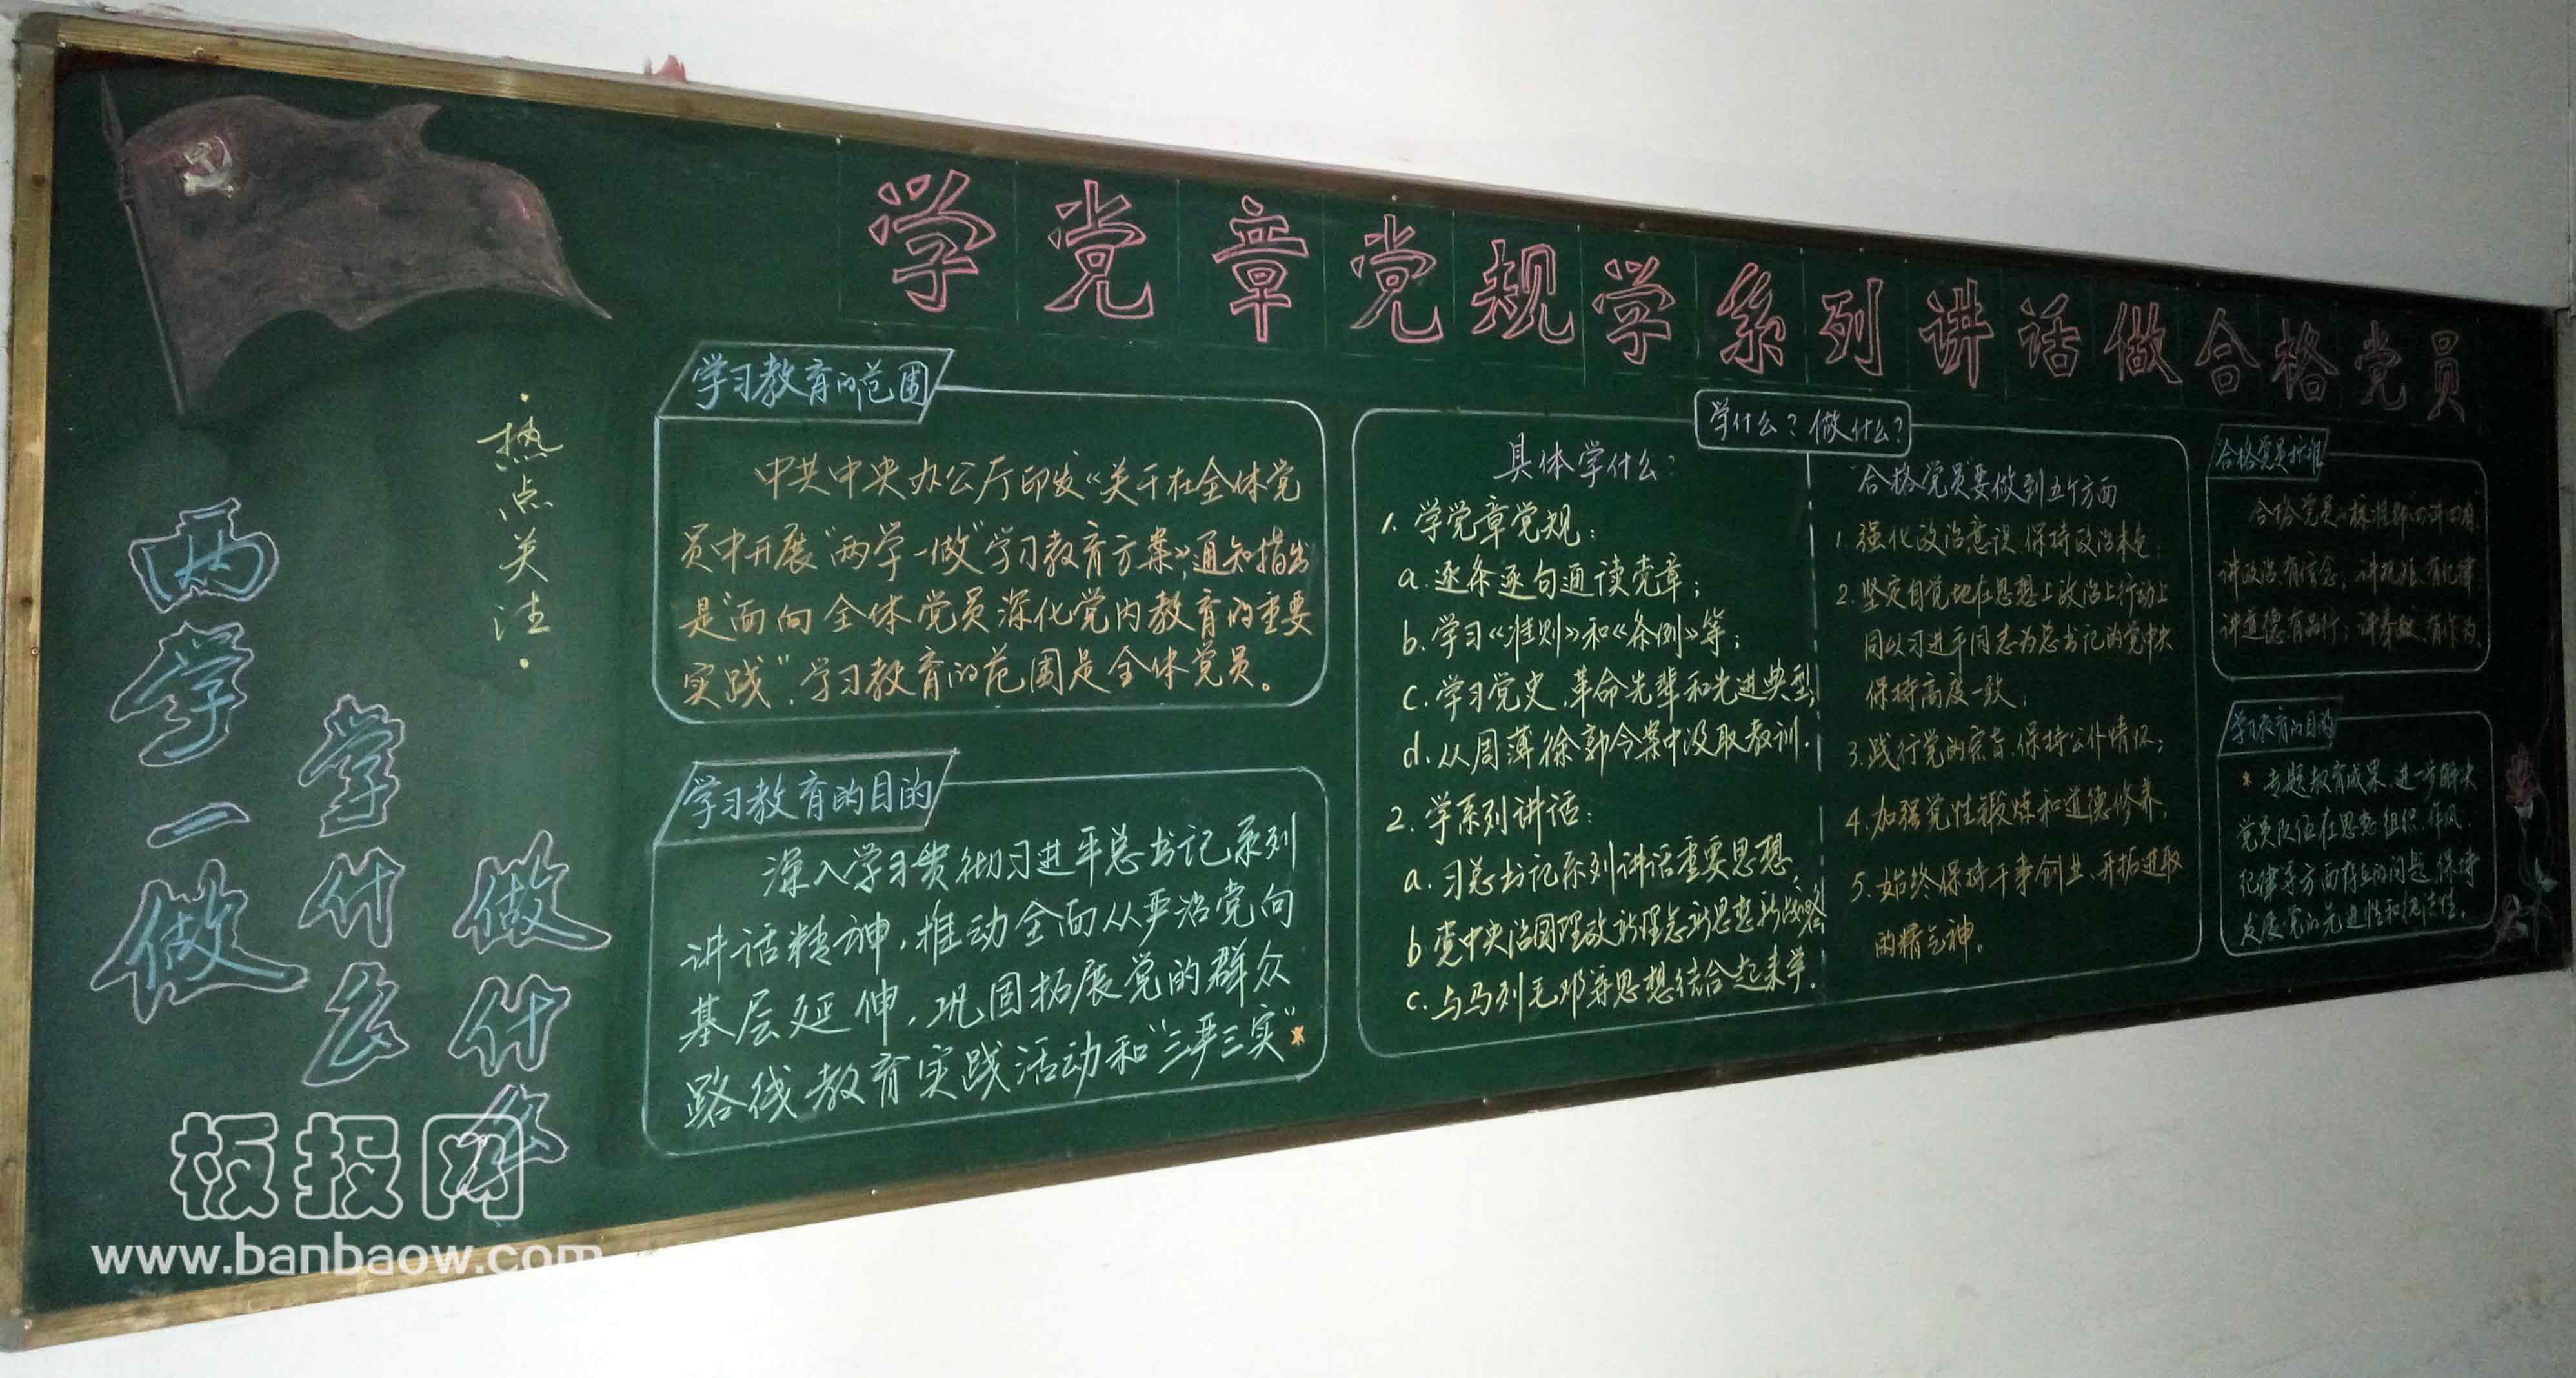 学党章党规学系列讲话做合格党员
·热点关注·
两学一做
学什么
做什么
学习教育的范围
中共中央办公厅印发《关于在全体党
员中开展“两学一做”学习教育方案》,通知指出
是“面向全体党员深化党内教育的重要
实践”,学习教育的范围是全体党员。
学习教育的目的
深入学习贯彻习进平总书记系列
讲话精神,推动全面从严治党向
基层延伸,巩固拓展党的群众
路线教育实践活动和“三严三实”*
学什么?做什么?
具体学什么?
1.学党章党规:
a.逐条逐句通读党章;
b.学习《准则》和《条例》等;
c.学习党史,革命先辈和先进典型,
d.从周薄徐郭令案中汲取教训.
2.学系列讲话:
a.习总书记系列讲话重要思想,
b党中央治国理政新理念新思想新战略
c.与马列毛邓等思想结合起来学.
合格党员要做到五个方面
1.强化政治意识,保持政治本色;
2.坚定自觉地在思想上政治上行动上
同以习进平同志为总书记的党中央
保持高度一致;
3.践行党的宗旨,保持公仆情怀;
4.加强党性锻炼和道德修养,
5.始终保持干事创业、开拓进取
的精气神。
合格党员标准
合格党员的标准即“四讲四有”
讲政治,有信念;讲规矩,有纪律;
讲道德有品行;讲奉献,有作为.
学习教育的目的
*专题教育成果,进一步解决
党员队伍在思想、组织、作风、
纪律等方面存在的问题,保持
发展党的先进性和纯洁性.
板报网
www.banbaow.com